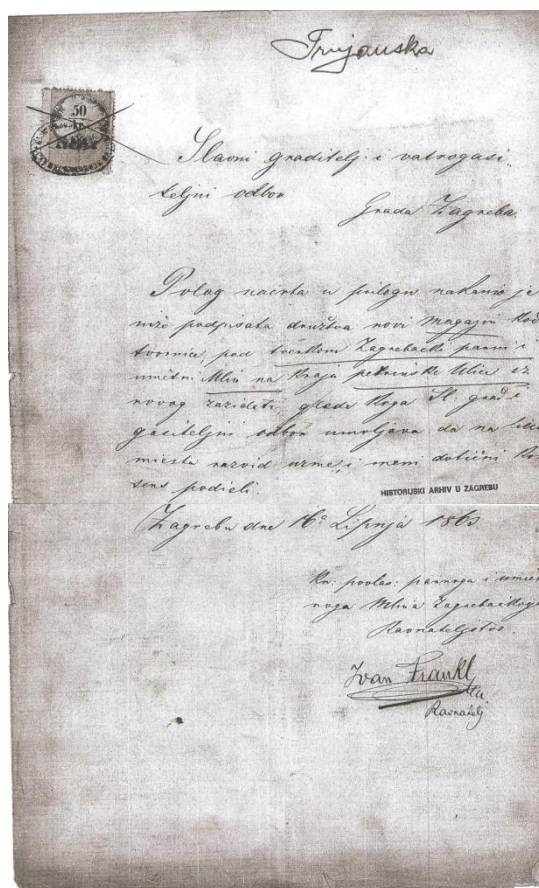 Trnjanska
50
Slavni graditelj. i vatrogasi-
teljni odbor
Grada Zagreba.
Polag nacrta u prilogu nakanio je
niže podpisata družtva novi magazin kod
tvornice, pod tvrtkom Zagrebački parni i
umětni Mlin na kraju petrinske Ulice iz
novog zazideti, glede koga Sl. grad i
gasiteljni odbor umoljava da na lice
miesta razvid uzme, i meni dotični kon
sens podieli.
HISTORIJSKI ARHIV U ZAGREBU
Zagrebu dne 16a Lipnja 1863
Kr: povlas: parnoga i umiet
noga Mlina Zagrebačkoga
Ravnateljstvo.
Ivan Frankl
Ravnatelj